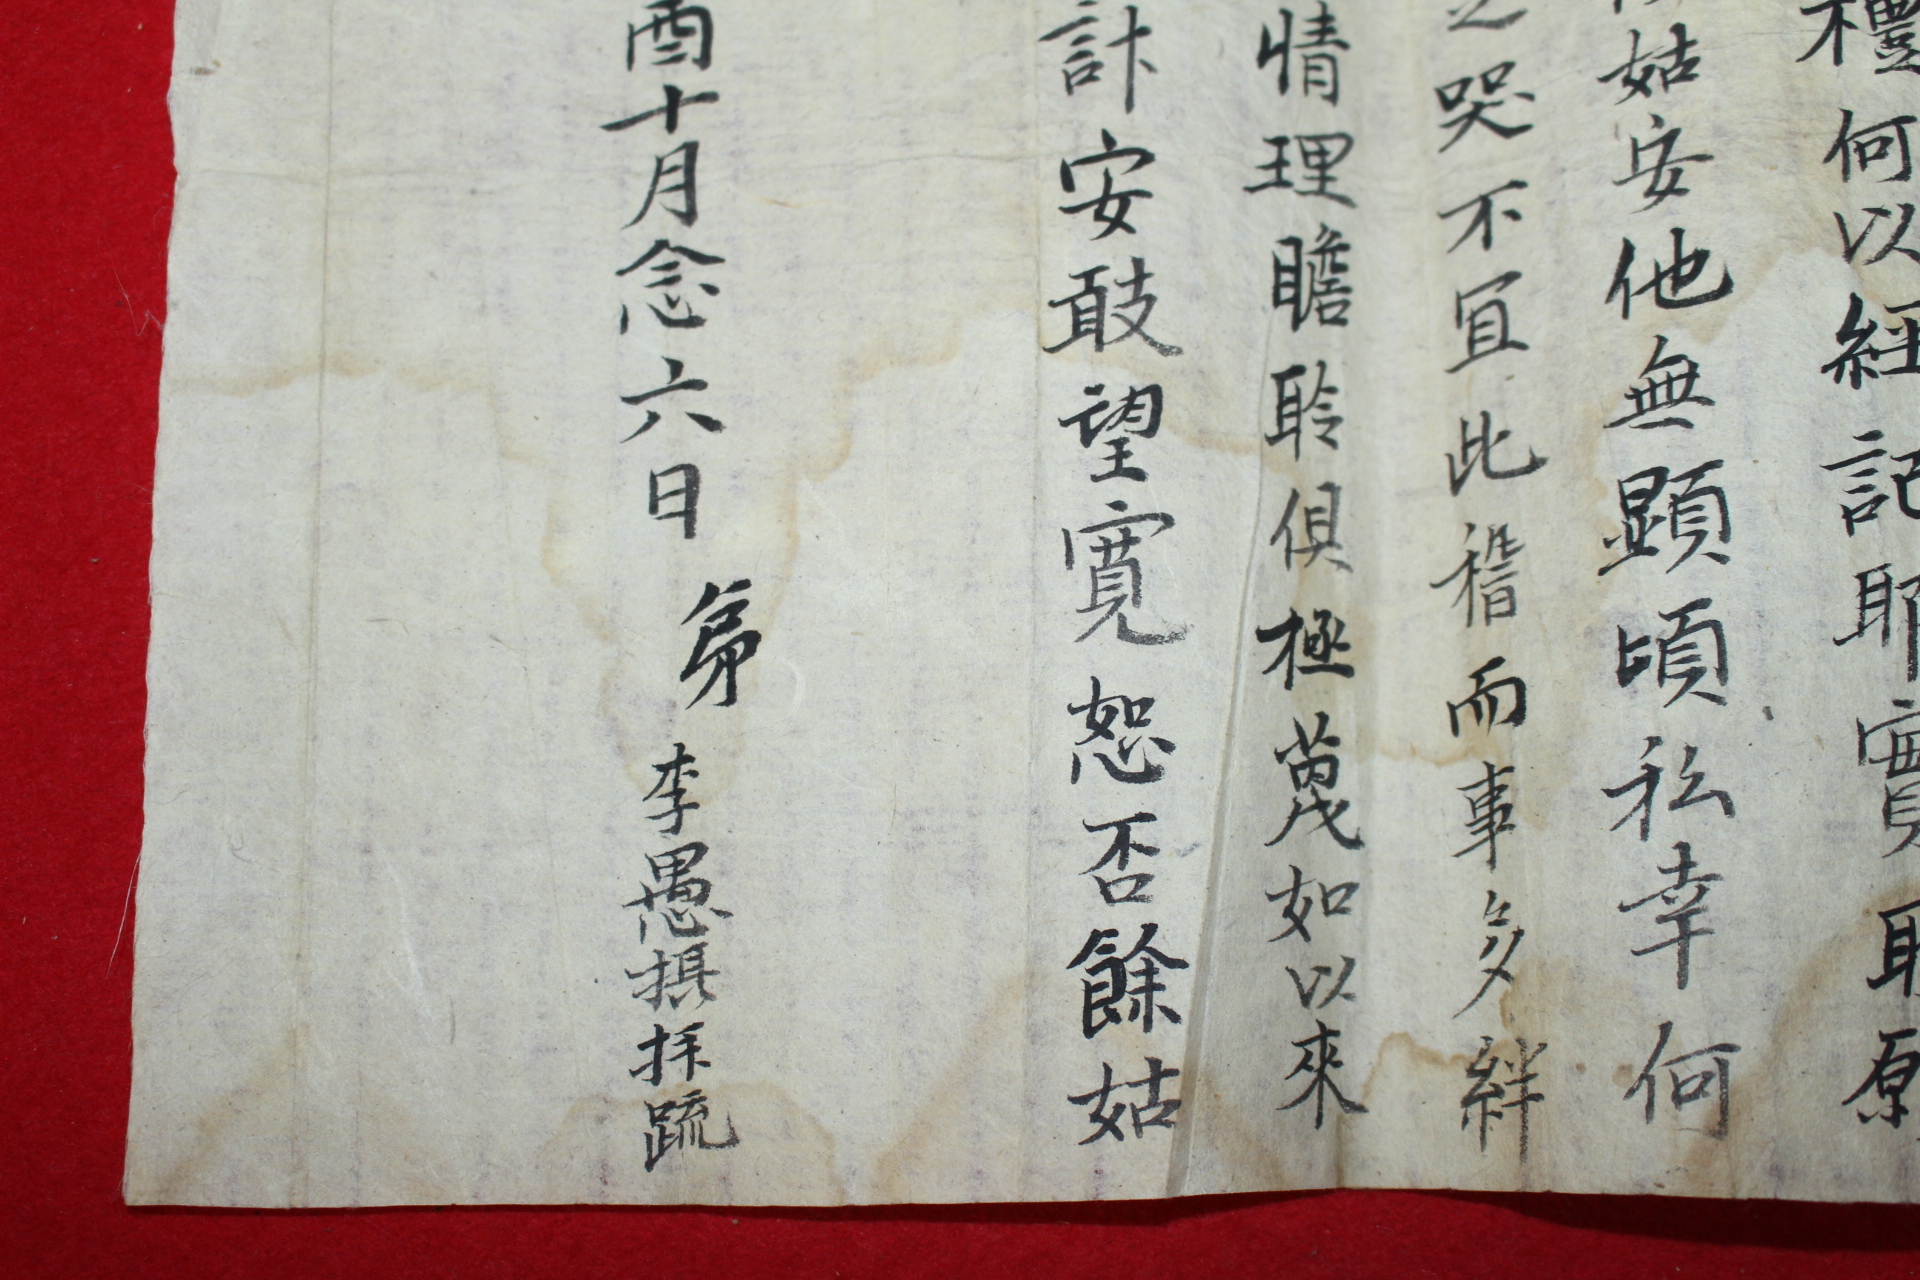 禮何以經記耶實耿原
姑安他無顯頃私幸何
之哭不宜此稽而事多絆
情理瞻聆俱極蔑如以來
計安敢望寬恕否餘姑
酉十月念六日 弟 李愚摂拜疏